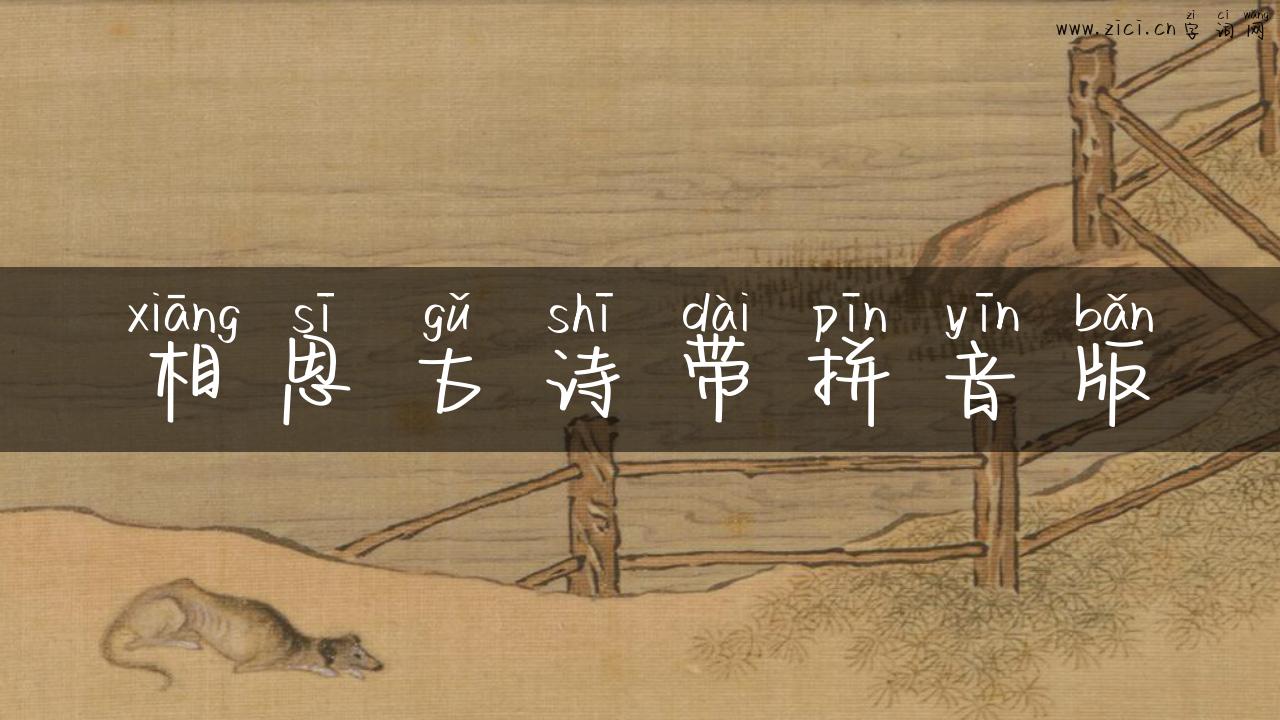 zì cí wǎng
www.zici.cn 字词网
xiāng sī gǔ shī dài pīn yīn bǎn
相思古诗带拼音版